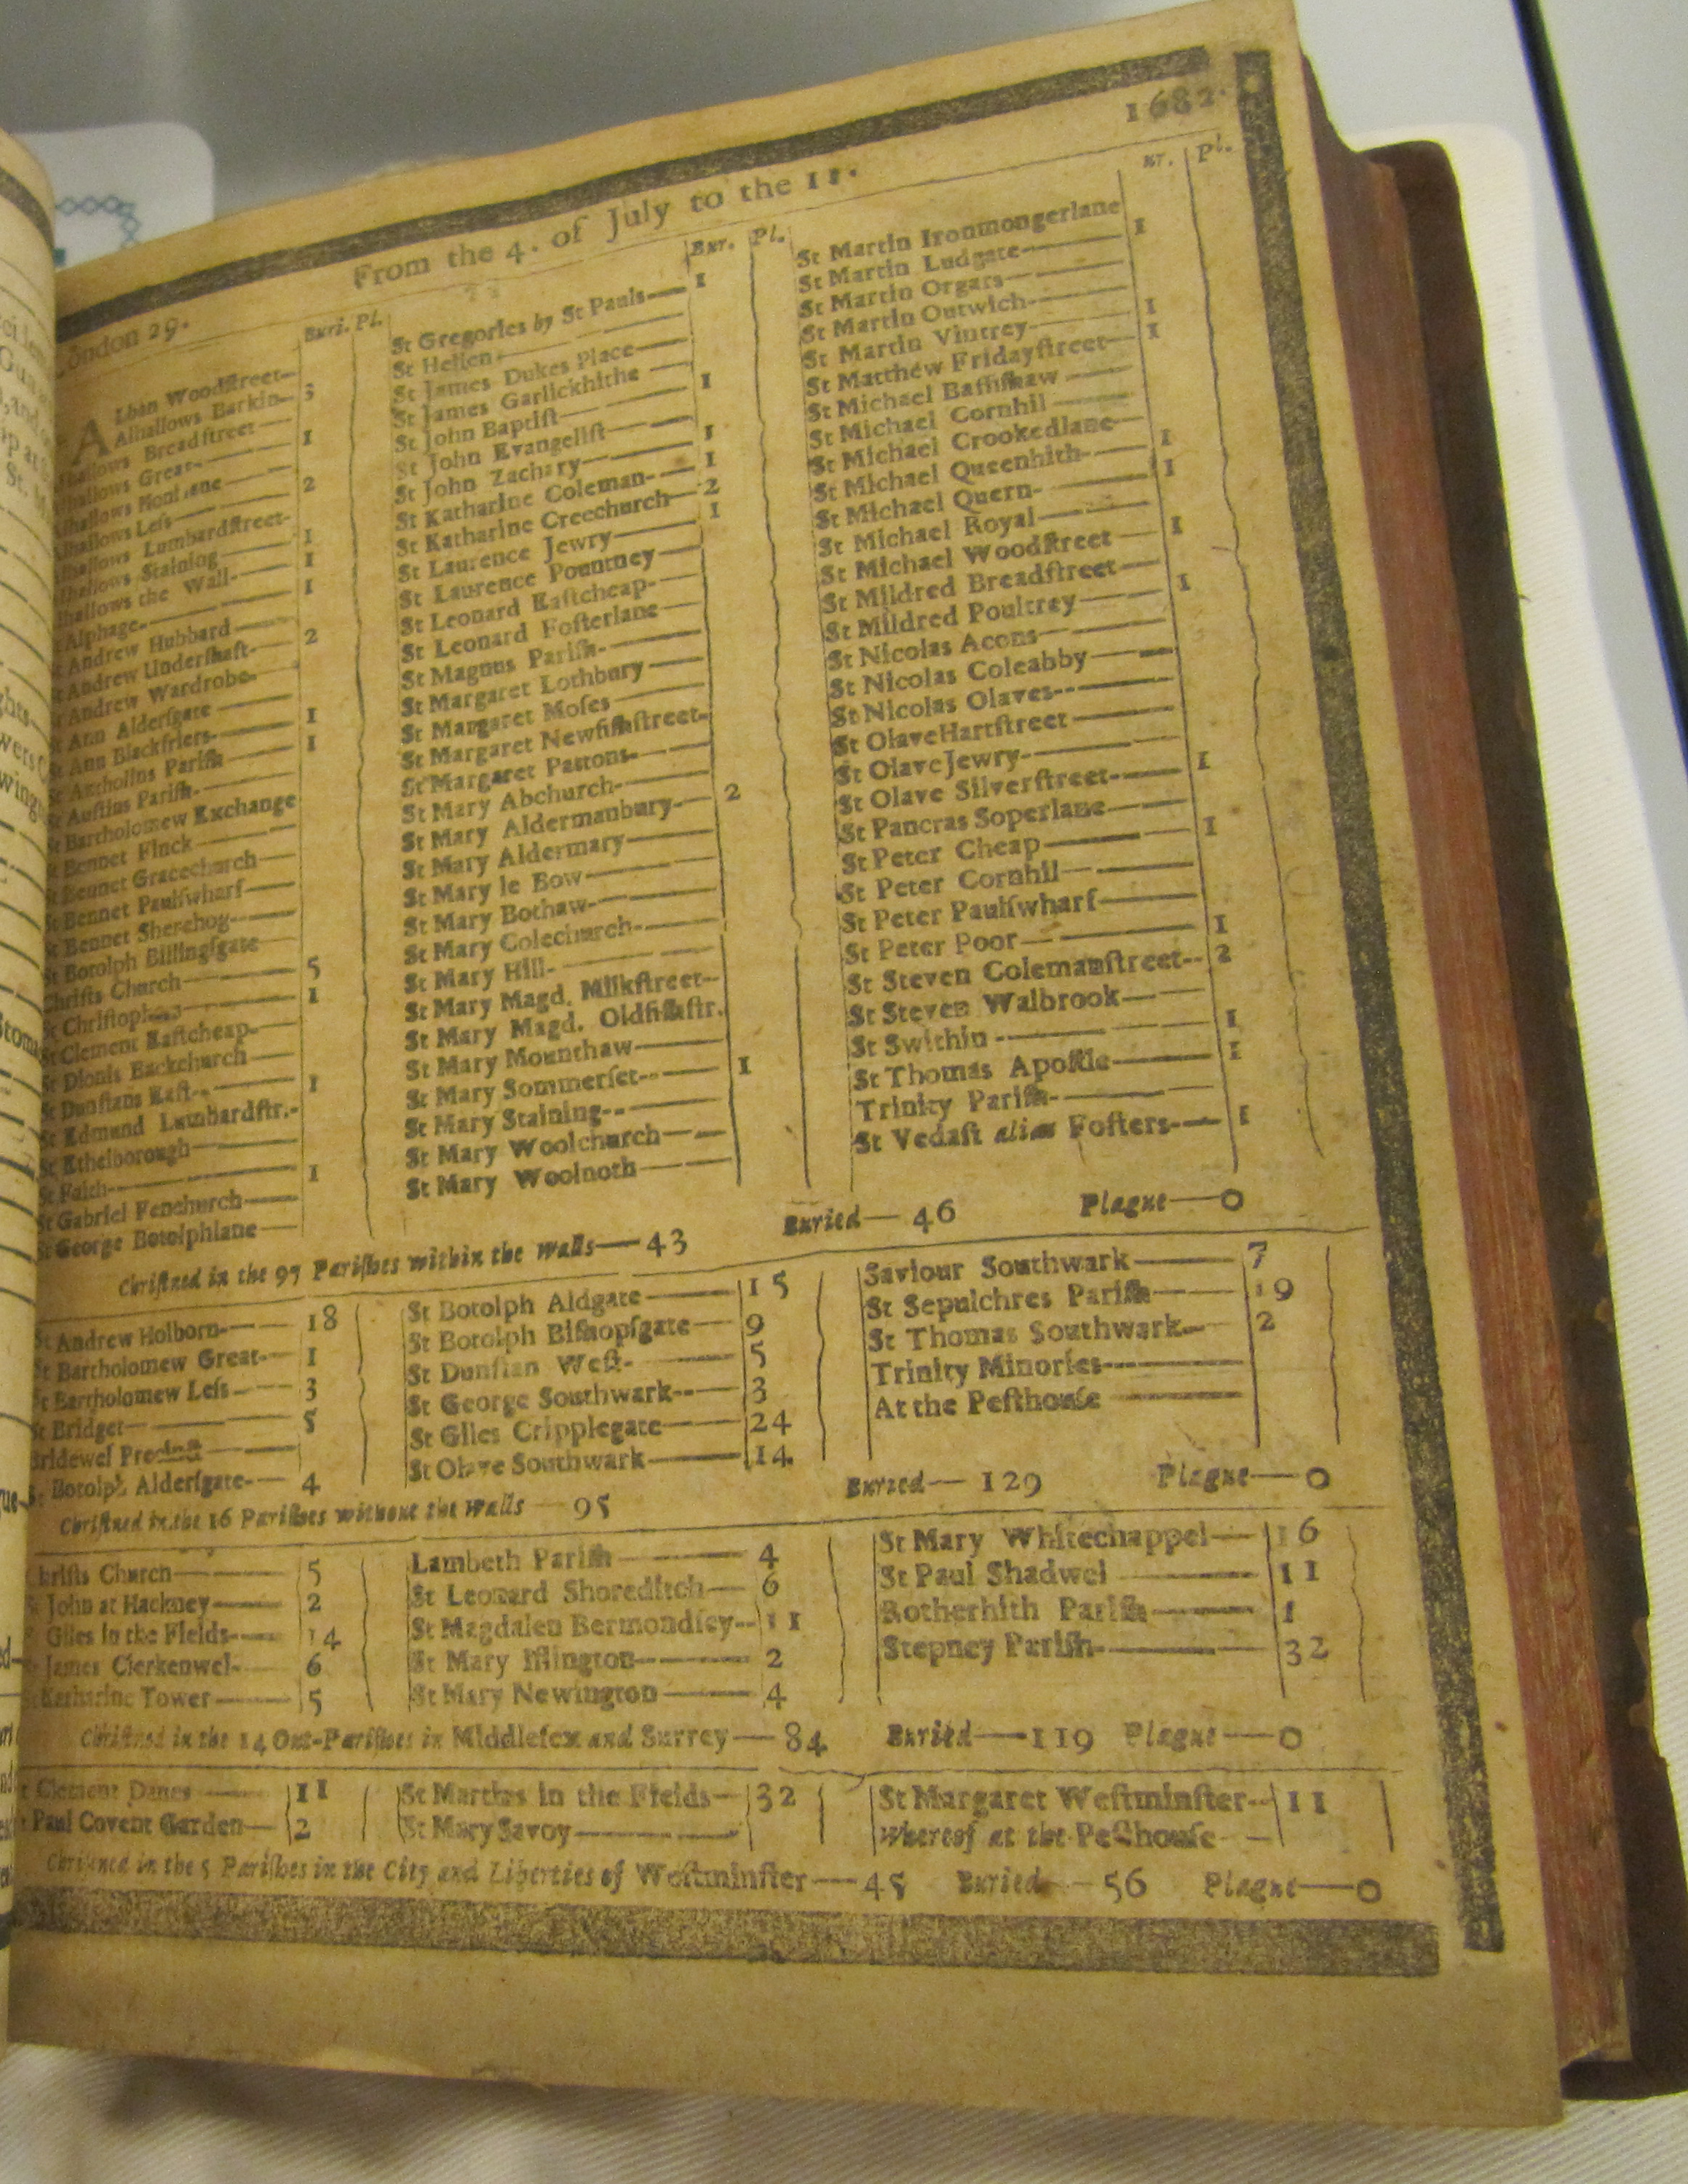 1682.
From the 4. of July to the 11.
London 29.
Buri. Pl.
ALban Woodſtreet
Alhallows Barkin 3
Alhallows Breadſtreet
Alhallows Great 1
Alhallows Honilane
Alhallows Leſs 2
Alhallows Lumbardſtreet
Alhallows Staining 1
Alhallows the Wall 1
St Alphage 1
St Andrew Hubbard
St Andrew Underſhaft 2
St Andrew Wardrobe
St Ann Alderſgate
St Ann Blackfriers 1
St Antholins Pariſh 1
St Auſtins Pariſh
St Bartholomew Exchange
St Bennet Finck
St Bennet Gracechurch
St Bennet Paulſwharf
St Bennet Sherehog
St Botolph Billingſgate
Chriſts Church 5
St Chriſtophers 1
St Clement Eaſtcheap
St Dionis Backchurch
St Dunſtans Eaſt 1
St Edmund Lumbardſtr.
St Ethelborough
St Faith 1
St Gabriel Fenchurch
St George Botolphlane
Bur. Pl.
St Gregories by St Pauls 1
St Hellen
St James Dukes Place
St James Garlickhithe
St John Baptiſt 1
St John Evangeliſt
St John Zachary 1
St Katharine Coleman 1
St Katharine Creechurch 2
St Laurence Jewry 1
St Laurence Pountney
St Leonard Eaſtcheap
St Leonard Foſterlane
St Magnus Pariſh
St Margaret Lothbury
St Margaret Moſes
St Margaret Newfiſhſtreet
St Margaret Pattons
St Mary Abchurch
St Mary Aldermanbury 2
St Mary Aldermary
St Mary le Bow
St Mary Bothaw
St Mary Colechurch
St Mary Hill
St Mary Magd. Milkſtreet
St Mary Magd. Oldfiſhſtr.
St Mary Mounthaw
St Mary Sommerſet 1
St Mary Staining
St Mary Woolchurch
St Mary Woolnoth
Bur. Pl.
St Martin Ironmongerlane
St Martin Ludgate 1
St Martin Orgars
St Martin Outwich
St Martin Vintrey 1
St Matthew Fridayſtreet 1
St Michael Baſſiſhaw
St Michael Cornhil
St Michael Crookedlane
St Michael Queenhith 1
St Michael Quern 1
St Michael Royal
St Michael Woodſtreet 1
St Mildred Breadſtreet
St Mildred Poultrey 1
St Nicolas Acons
St Nicolas Coleabby
St Nicolas Olaves
St Olave Hartſtreet
St Olave Jewry
St Olave Silverſtreet 1
St Pancras Soperlane
St Peter Cheap 1
St Peter Cornhil
St Peter Paulſwharf
St Peter Poor 1
St Steven Colemanſtreet 2
St Steven Walbrook
St Swithin 1
St Thomas Apoſtle 1
Trinity Pariſh
St Vedaſt alias Foſters 1
Chriſtned in the 97 Pariſhes within the Walls—43 Buried—46 Plague—0
St Andrew Holborn 18
St Bartholomew Great 1
St Bartholomew Leſs 3
St Bridget 5
Bridewel Precinct
St Botolph Alderſgate 4
St Botolph Aldgate 15
St Botolph Biſhopſgate 9
St Dunſtan Weſt 5
St George Southwark 3
St Giles Cripplegate 24
St Olave Southwark 14
Saviour Southwark 7
St Sepulchres Pariſh 19
St Thomas Southwark 2
Trinity Minories
At the Peſthouſe
Chriſtned in the 16 Pariſhes without the Walls—95 Buried—129 Plague—0
Chriſts Church 5
St John at Hackney 2
St Giles in the Fields 14
St James Clerkenwel 6
St Katharine Tower 5
Lambeth Pariſh 4
St Leonard Shoreditch 6
St Magdalen Bermondſey 11
St Mary Iſlington 2
St Mary Newington 4
St Mary Whitechappel 16
St Paul Shadwel 11
Rotherhith Pariſh 1
Stepney Pariſh 32
Chriſtned in the 14 Out-Pariſhes in Middleſex and Surrey—84 Buried—119 Plague—0
St Clement Danes 11
St Paul Covent Garden 2
St Martins in the Fields 32
St Mary Savoy
St Margaret Weſtminſter 11
Whereof at the Peſthouſe
Chriſtned in the 5 Pariſhes in the City and Liberties of Weſtminſter—45 Buried—56 Plague—0